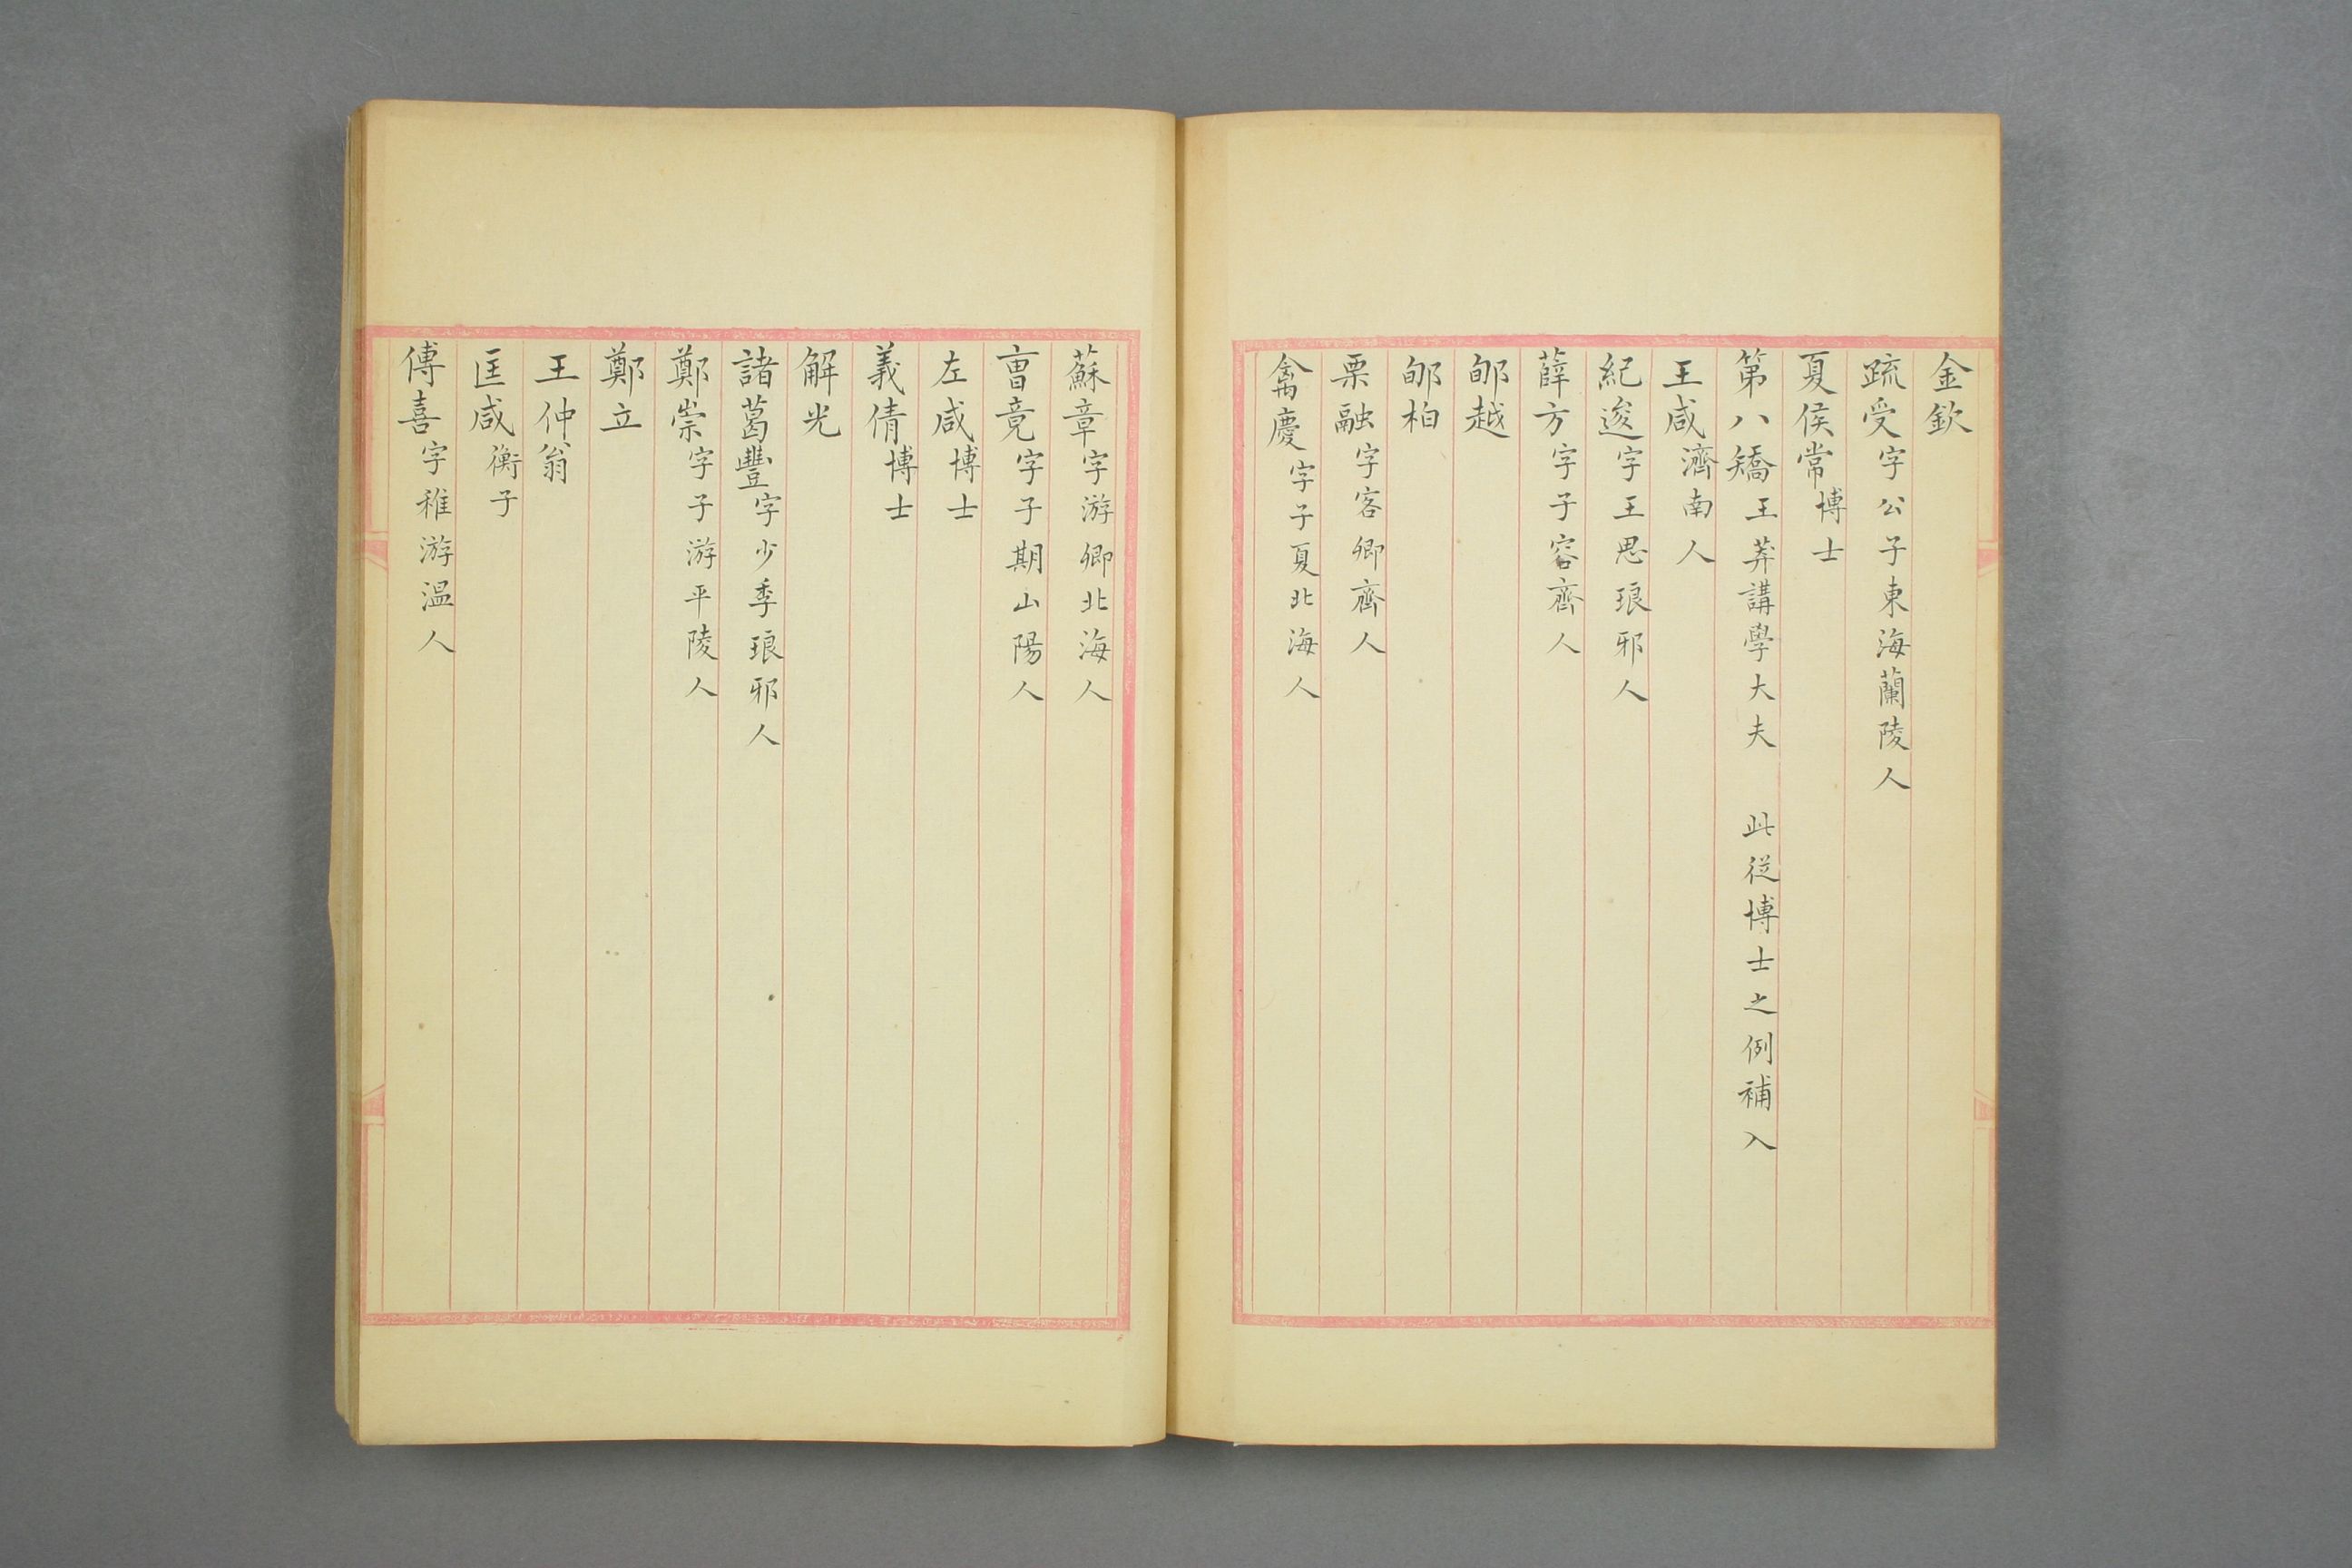 金欽
疏受字公子東海蘭陵人
夏侯常博士
第八矯王莽講學大夫　此從博士之例補入
王咸濟南人
紀逡字王思琅邪人
薛方字子容齊人
郇越
郇柏
栗融字客卿齊人
禽慶字子夏北海人
蘇章字游卿北海人
曹竟字子期山陽人
左咸博士
義倩博士
解光
諸葛豐字少季琅邪人
鄭崇字子游平陵人
鄭立
王仲翁
匡咸衡子
傅喜字稚游溫人